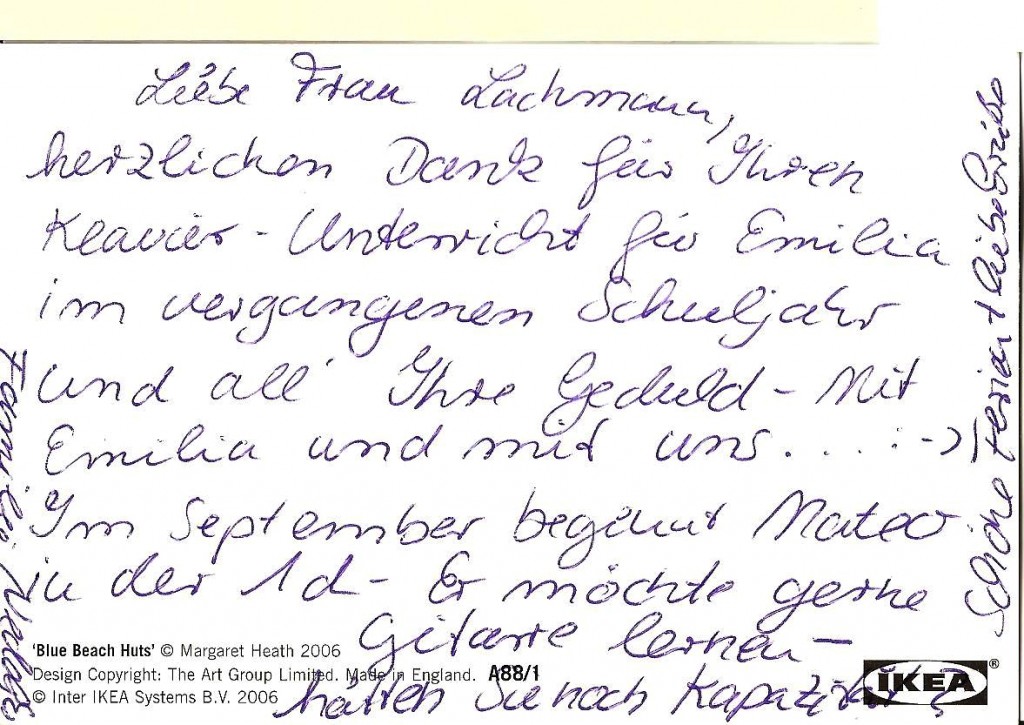 Liebe Frau Lachmann,
herzlichen Dank für Ihren
Klavier-Unterricht für Emilia
im vergangenen Schuljahr
und all' Ihre Geduld - Mit
Emilia und mit uns.... :-)
Im September beginnt Mateo
in der 1d - Er möchte gerne
Gitarre lernen -
hätten Sie noch Kapazität
Schöne Ferien + liebe Grüße
Familie
'Blue Beach Huts' © Margaret Heath 2006
Design Copyright: The Art Group Limited. Made in England. A88/1
© Inter IKEA Systems B.V. 2006
IKEA®